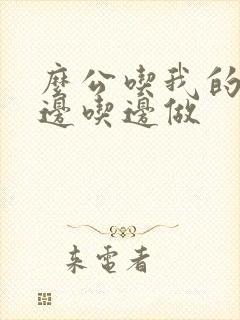 麼公喫我的
邊喫邊做
来電者